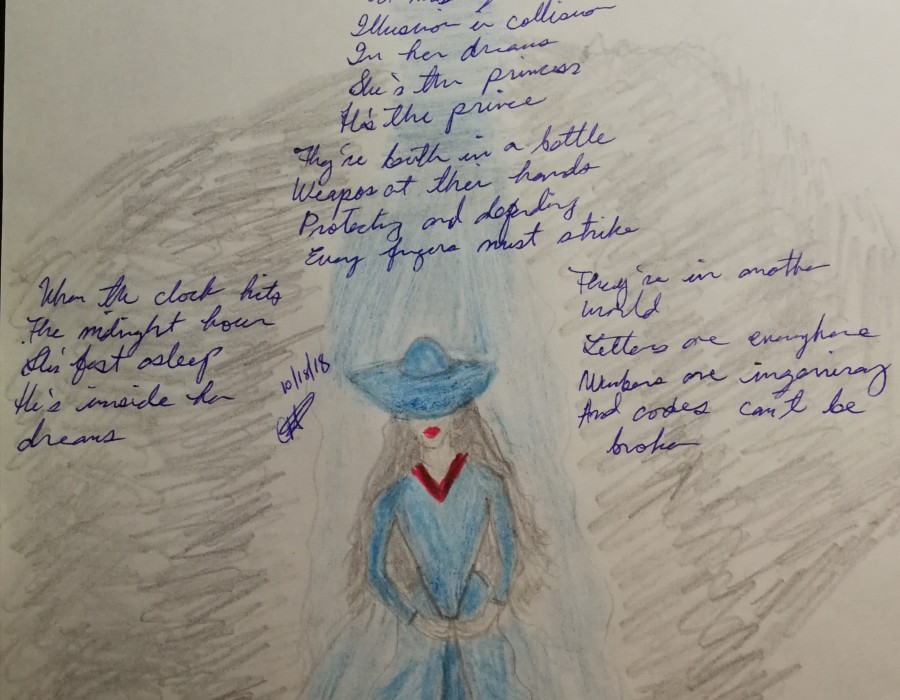 Illusion in collision
In her dreams
She's the princess
He's the prince
They're both in a battle
Weapos at their hands
Protecting and defending
Every fingers must strike
When the clock hits
The midnight hour
She's fast asleep
He's inside her
dreams
10/18/18
They're in another
world
Letters are everywhere
Numbers are
And codes can't be
broken